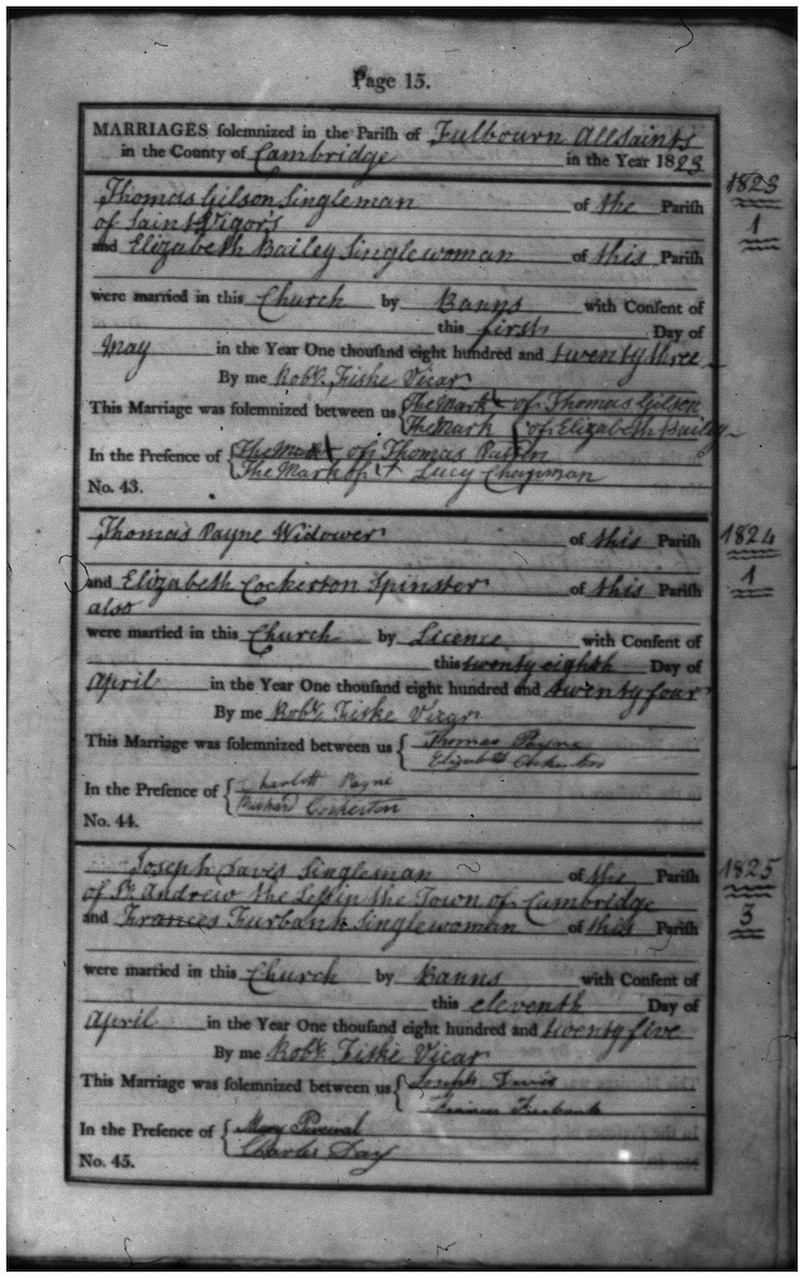 Page 15.
MARRIAGES solemnized in the Parish of Fulbourn Allsaints
in the County of Cambridge in the Year 1823
1823
1
Thomas Gilson Singleman of the Parish
of Saint Vigor's
and Elizabeth Bailey Singlewoman of this Parish
were married in this Church by Banns with Consent of
this first Day of
May in the Year One thousand eight hundred and twenty three
By me Robt. Fiske Vicar
This Marriage was solemnized between us The Mark of Thomas Gilson
The Mark of Elizabeth Bailey
In the Presence of The Mark of Thomas
The Mark of Lucy Chapman
No. 43.
1824
1
Thomas Payne Widower of this Parish
and Elizabeth Cockerton Spinster of this Parish
also
were married in this Church by Licence with Consent of
this twenty eighth Day of
April in the Year One thousand eight hundred and twenty four
By me Robt. Fiske Vicar
This Marriage was solemnized between us Thomas Payne
Elizabeth Cockerton
In the Presence of Charlott Payne
Richard Cockerton
No. 44.
1825
3
Joseph Davis Singleman of the Parish
of St. Andrew the Less in the Town of Cambridge
and Frances Furbank Singlewoman of this Parish
were married in this Church by Banns with Consent of
this eleventh Day of
April in the Year One thousand eight hundred and twenty five
By me Robt. Fiske Vicar
This Marriage was solemnized between us Joseph Davis
Frances Furbank
In the Presence of Mary Percival
Charles Day
No. 45.